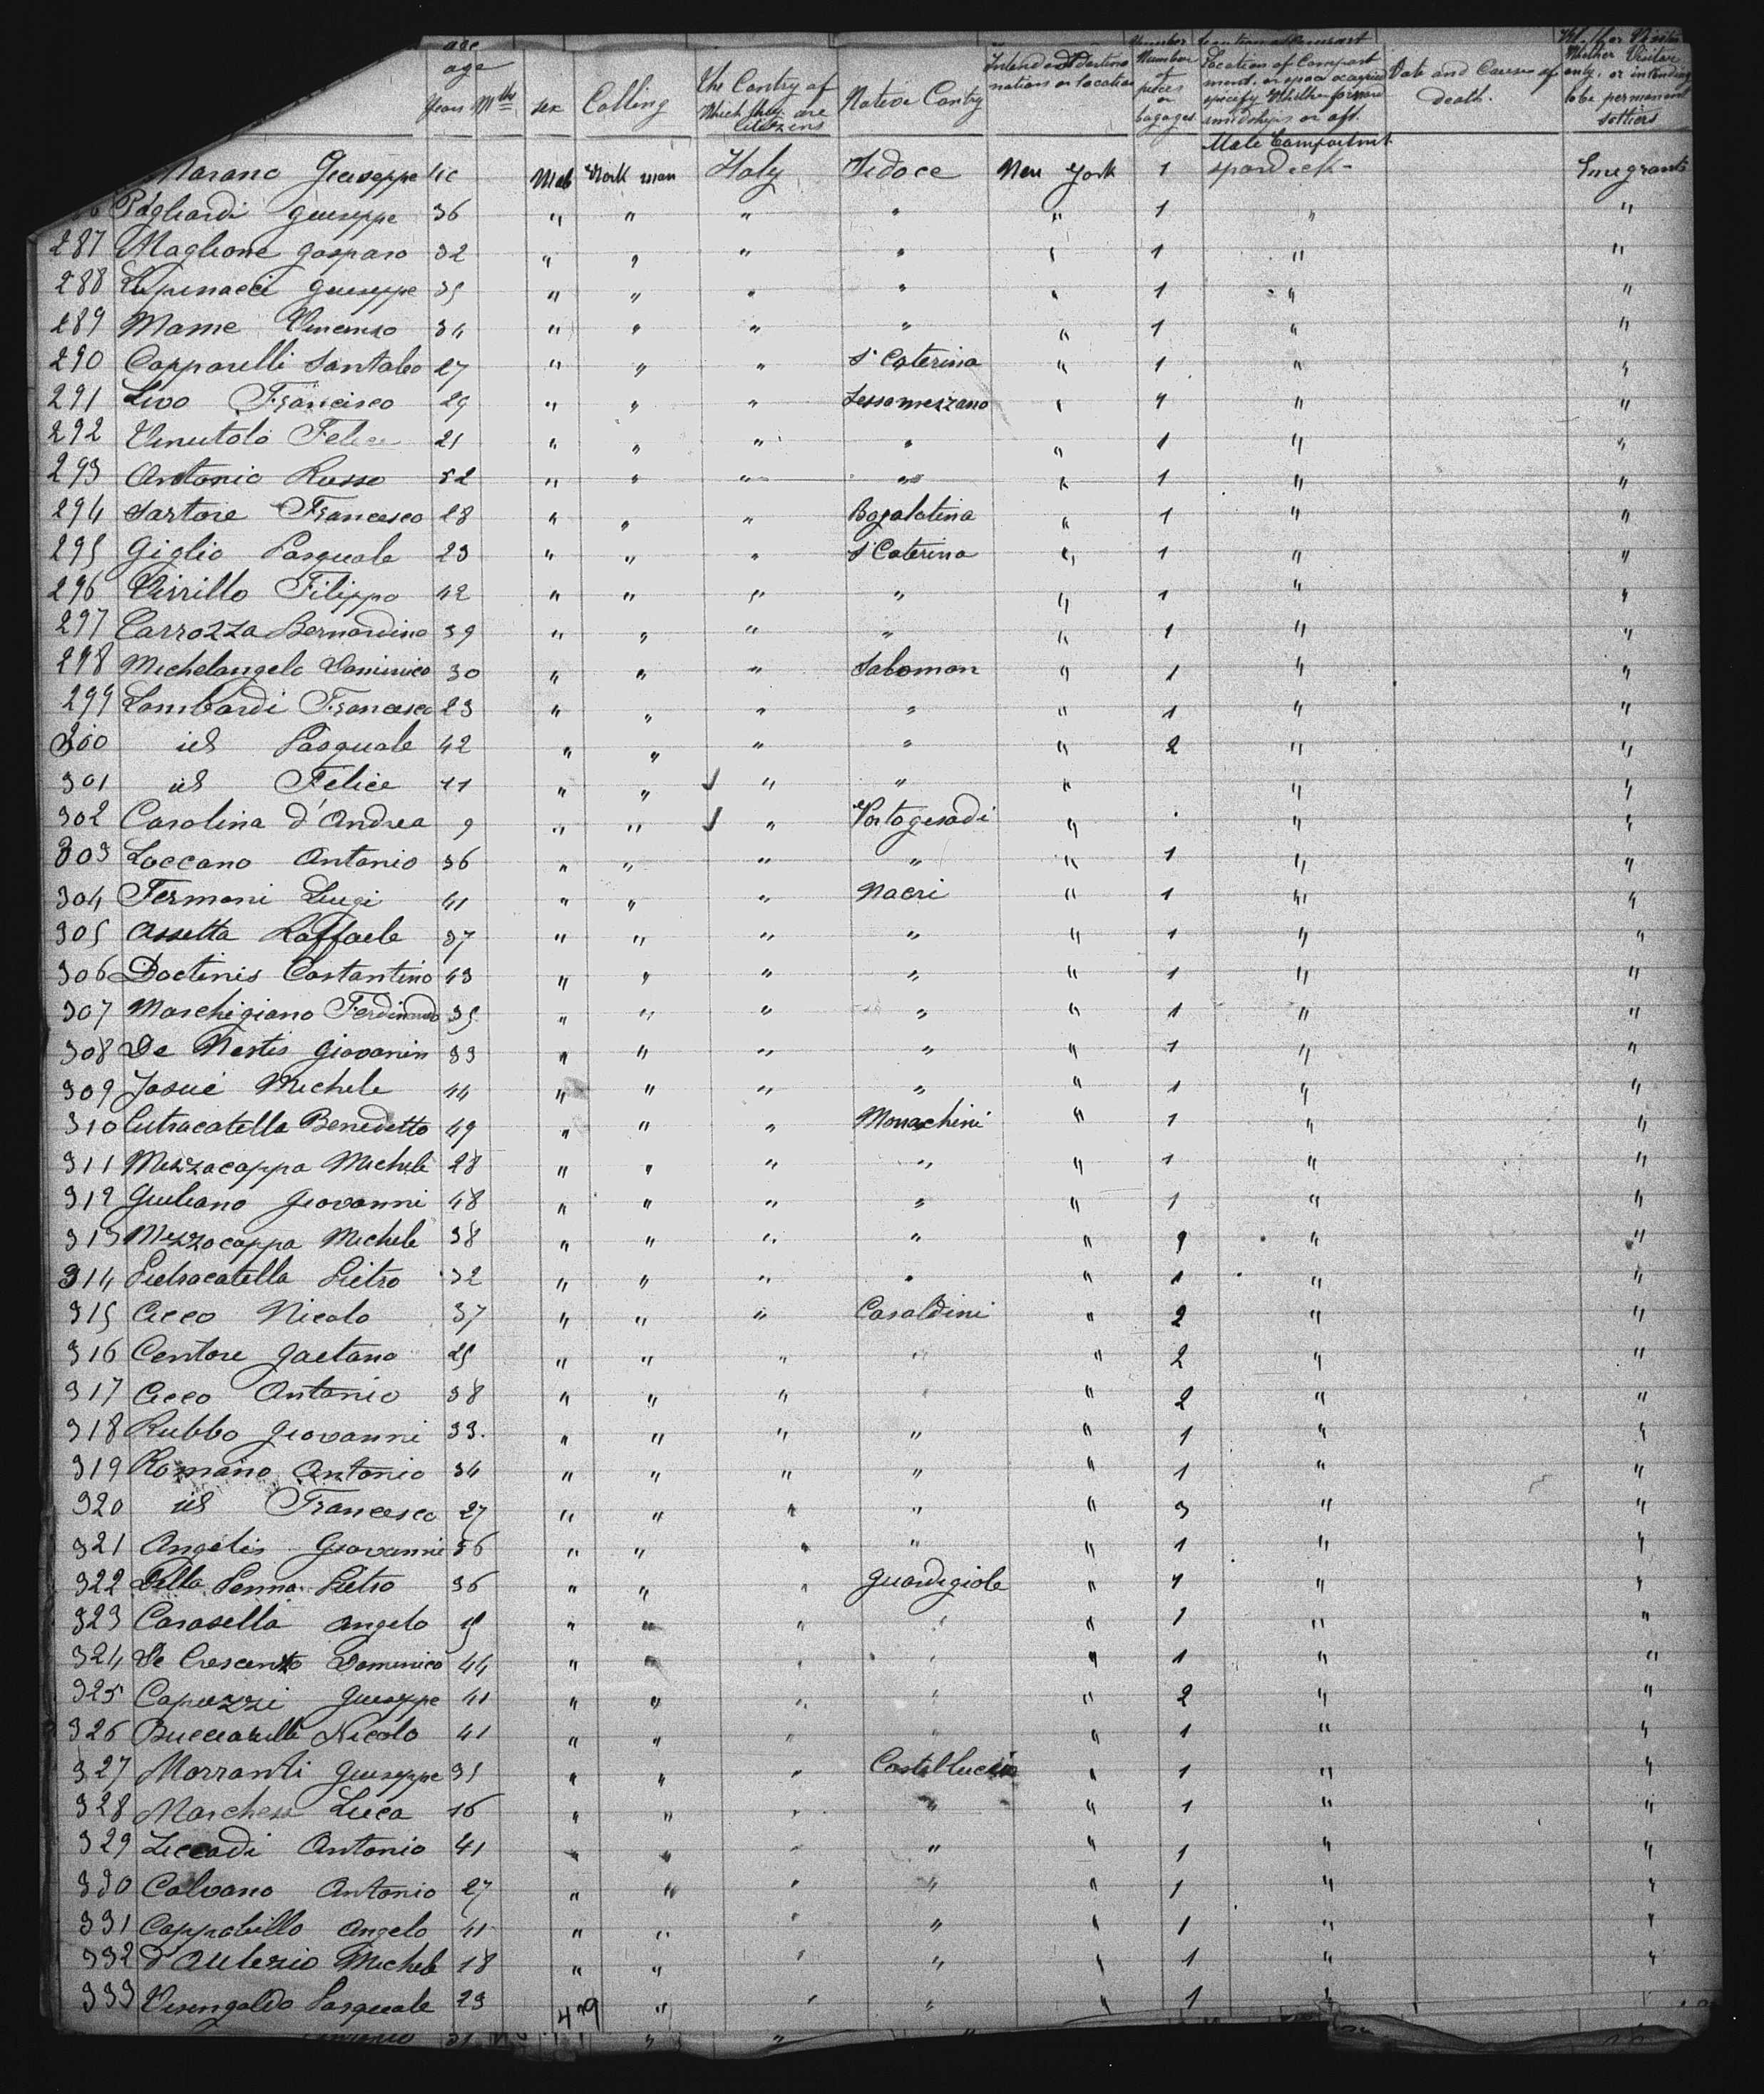 age
age
Years Mths sex Calling The Contry of Which they are citizens Native Contry Intended Destinations or location Number of pieces on bagages Location of Compartment or space occupied specify Whether forward amidships or aft. Date and Causes of death. Whether Visitor only, or intending to be permanent settlers
Male Compartment
Marano Giuseppe Male Work man Italy Fedoce New York 1 spardeck Emigrants
Pagliardi Giuseppe 36 " " " " " 1 " "
287 Maglione Gasparo 32 " " " " " 1 " "
288 Giuseppe 35 " " " " " 1 " "
289 Mame Vincenso 34 " " " " " 1 " "
290 Capparelli Santaleo 27 " " " S. Caterina " 1 " "
291 Livo Francisco 29 " " " Lessomezzano " 1 " "
292 Vinutolo Felice 21 " " " " " 1 " "
293 Antonio Russo 52 " " " " " 1 " "
294 Sartore Francesco 28 " " " Bagalatina " 1 " "
295 Giglio Pasquale 23 " " " S. Caterina " 1 " "
296 Virrillo Filippo 42 " " " " " 1 " "
297 Carrozza Bernardino 39 " " " " " 1 " "
298 Michelangelo Dominico 30 " " " Salomon " 1 " "
299 Lombardi Francesco 23 " " " " " 1 " "
300 id Pasquale 42 " " " " " 2 " "
301 id Felice 11 " " " " " " "
302 Carolina d'Andrea 9 " " " Portogeradi " " "
303 Loccano Antonio 36 " " " " " 1 " "
304 Fermani Luigi 41 " " " Nacri " 1 " "
305 Assetta Raffaele 37 " " " " " 1 " "
306 Doctinis Costantino 43 " " " " " 1 " "
307 Marchigiano Ferdinando 35 " " " " " 1 " "
308 De Nestis Giovanin 33 " " " " " 1 " "
309 Josué Michele 44 " " " " " 1 " "
310 Cutracatella Benedetto 49 " " " Monachini " 1 " "
311 Mezzacappa Michele 28 " " " " " 1 " "
312 Giuliano Giovanni 48 " " " " " 1 " "
313 Mezzocappa Michele 38 " " " " " 1 " "
314 Pietracatella Pietro 32 " " " " " 1 " "
315 Cicco Nicolo 37 " " " Casaldini " 2 " "
316 Centore Gaetano 25 " " " " " 2 " "
317 Cicco Antonio 38 " " " " " 2 " "
318 Rubbo Giovanni 33 " " " " " 1 " "
319 Romano Antonio 34 " " " " " 1 " "
320 id Francesco 27 " " " " " 3 " "
321 Angelis Giovanni 56 " " " " " 1 " "
322 Della Penna Pietro 36 " " " Guardigiole " 1 " "
323 Carosella Angelo " " " " " 1 " "
324 De Crescento Domenico 44 " " " " " 1 " "
325 Capuzzi Giuseppe 41 " " " " " 2 " "
326 Bucciarelli Nicolo 41 " " " " " 1 " "
327 Morranti Giuseppe 35 " " " Castelluccio " 1 " "
328 Marchese Luca 16 " " " " " 1 " "
329 Ziccadi Antonio 41 " " " " " 1 " "
330 Calvano Antonio 27 " " " " " 1 " "
331 Cappabillo Angelo 41 " " " " " 1 " "
332 d'Aulerio Michele 18 " " " " " 1 " "
333 Visengaldo Pasquale 23 " " " " 1 "